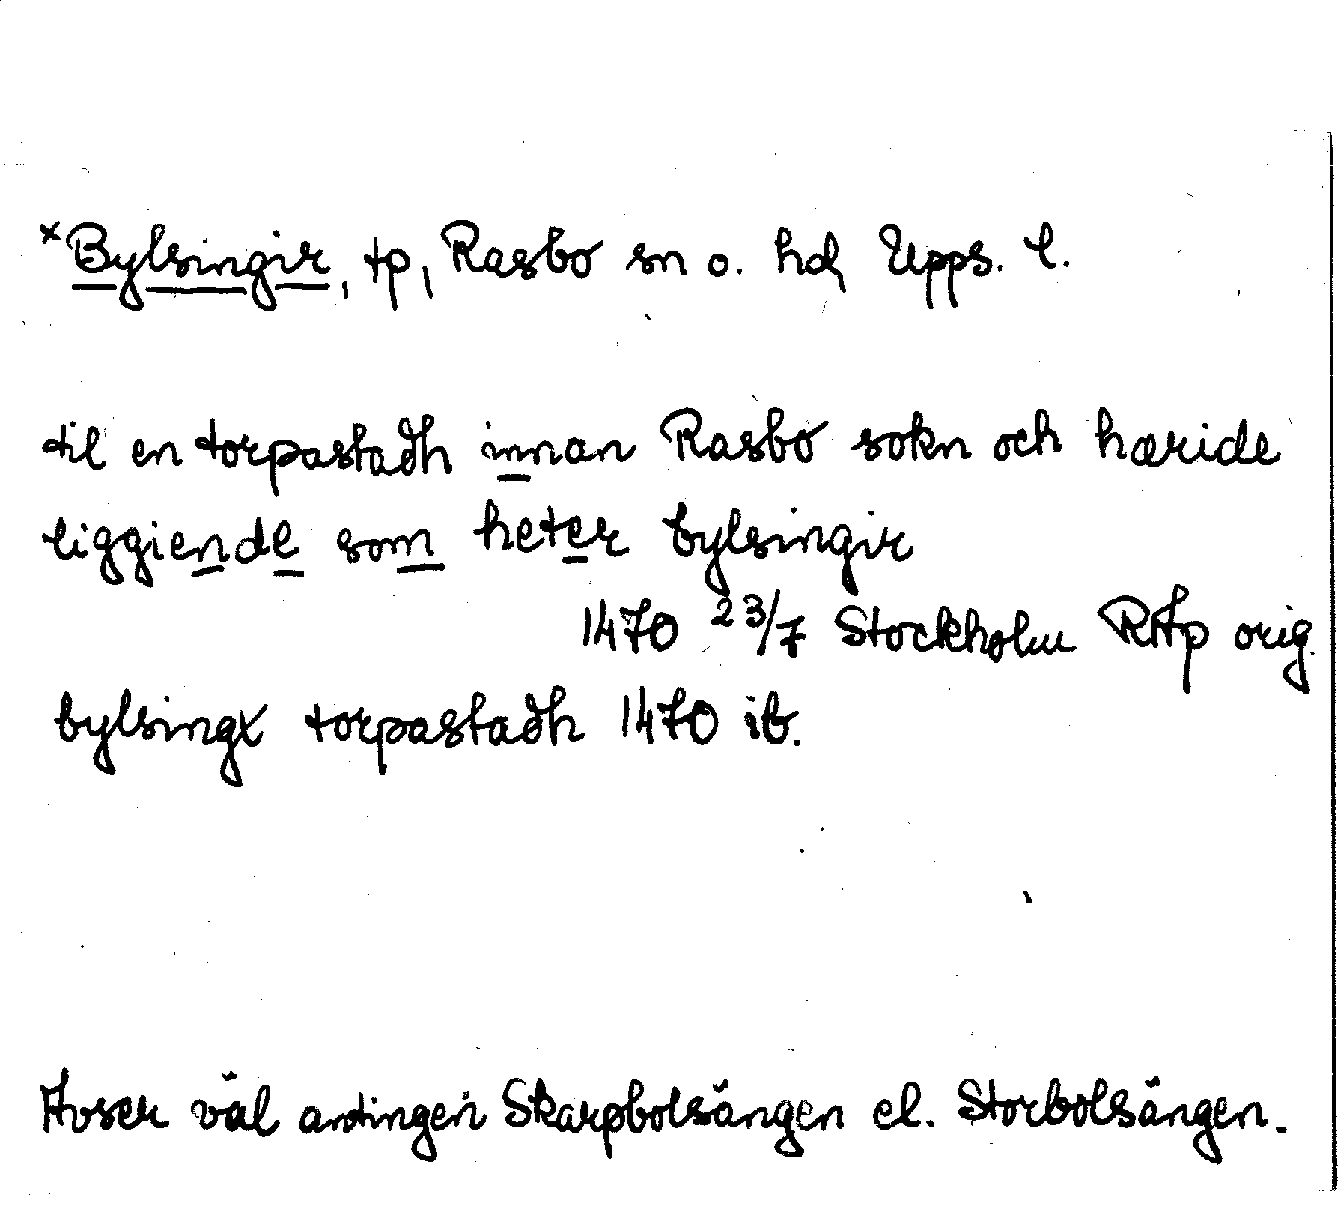 ×Bylsingir, tp, Rasbo sn o. hd, Upps. l.
til en torpastaðh innan Rasbo sokn och hæride
liggiende som heter bylsingir
1470 23/7 Stockholm RAp orig.
bylsingx torpastaðh 1470 ib.
Avser väl antingen Skarpbolsängen el. Storbolsängen.